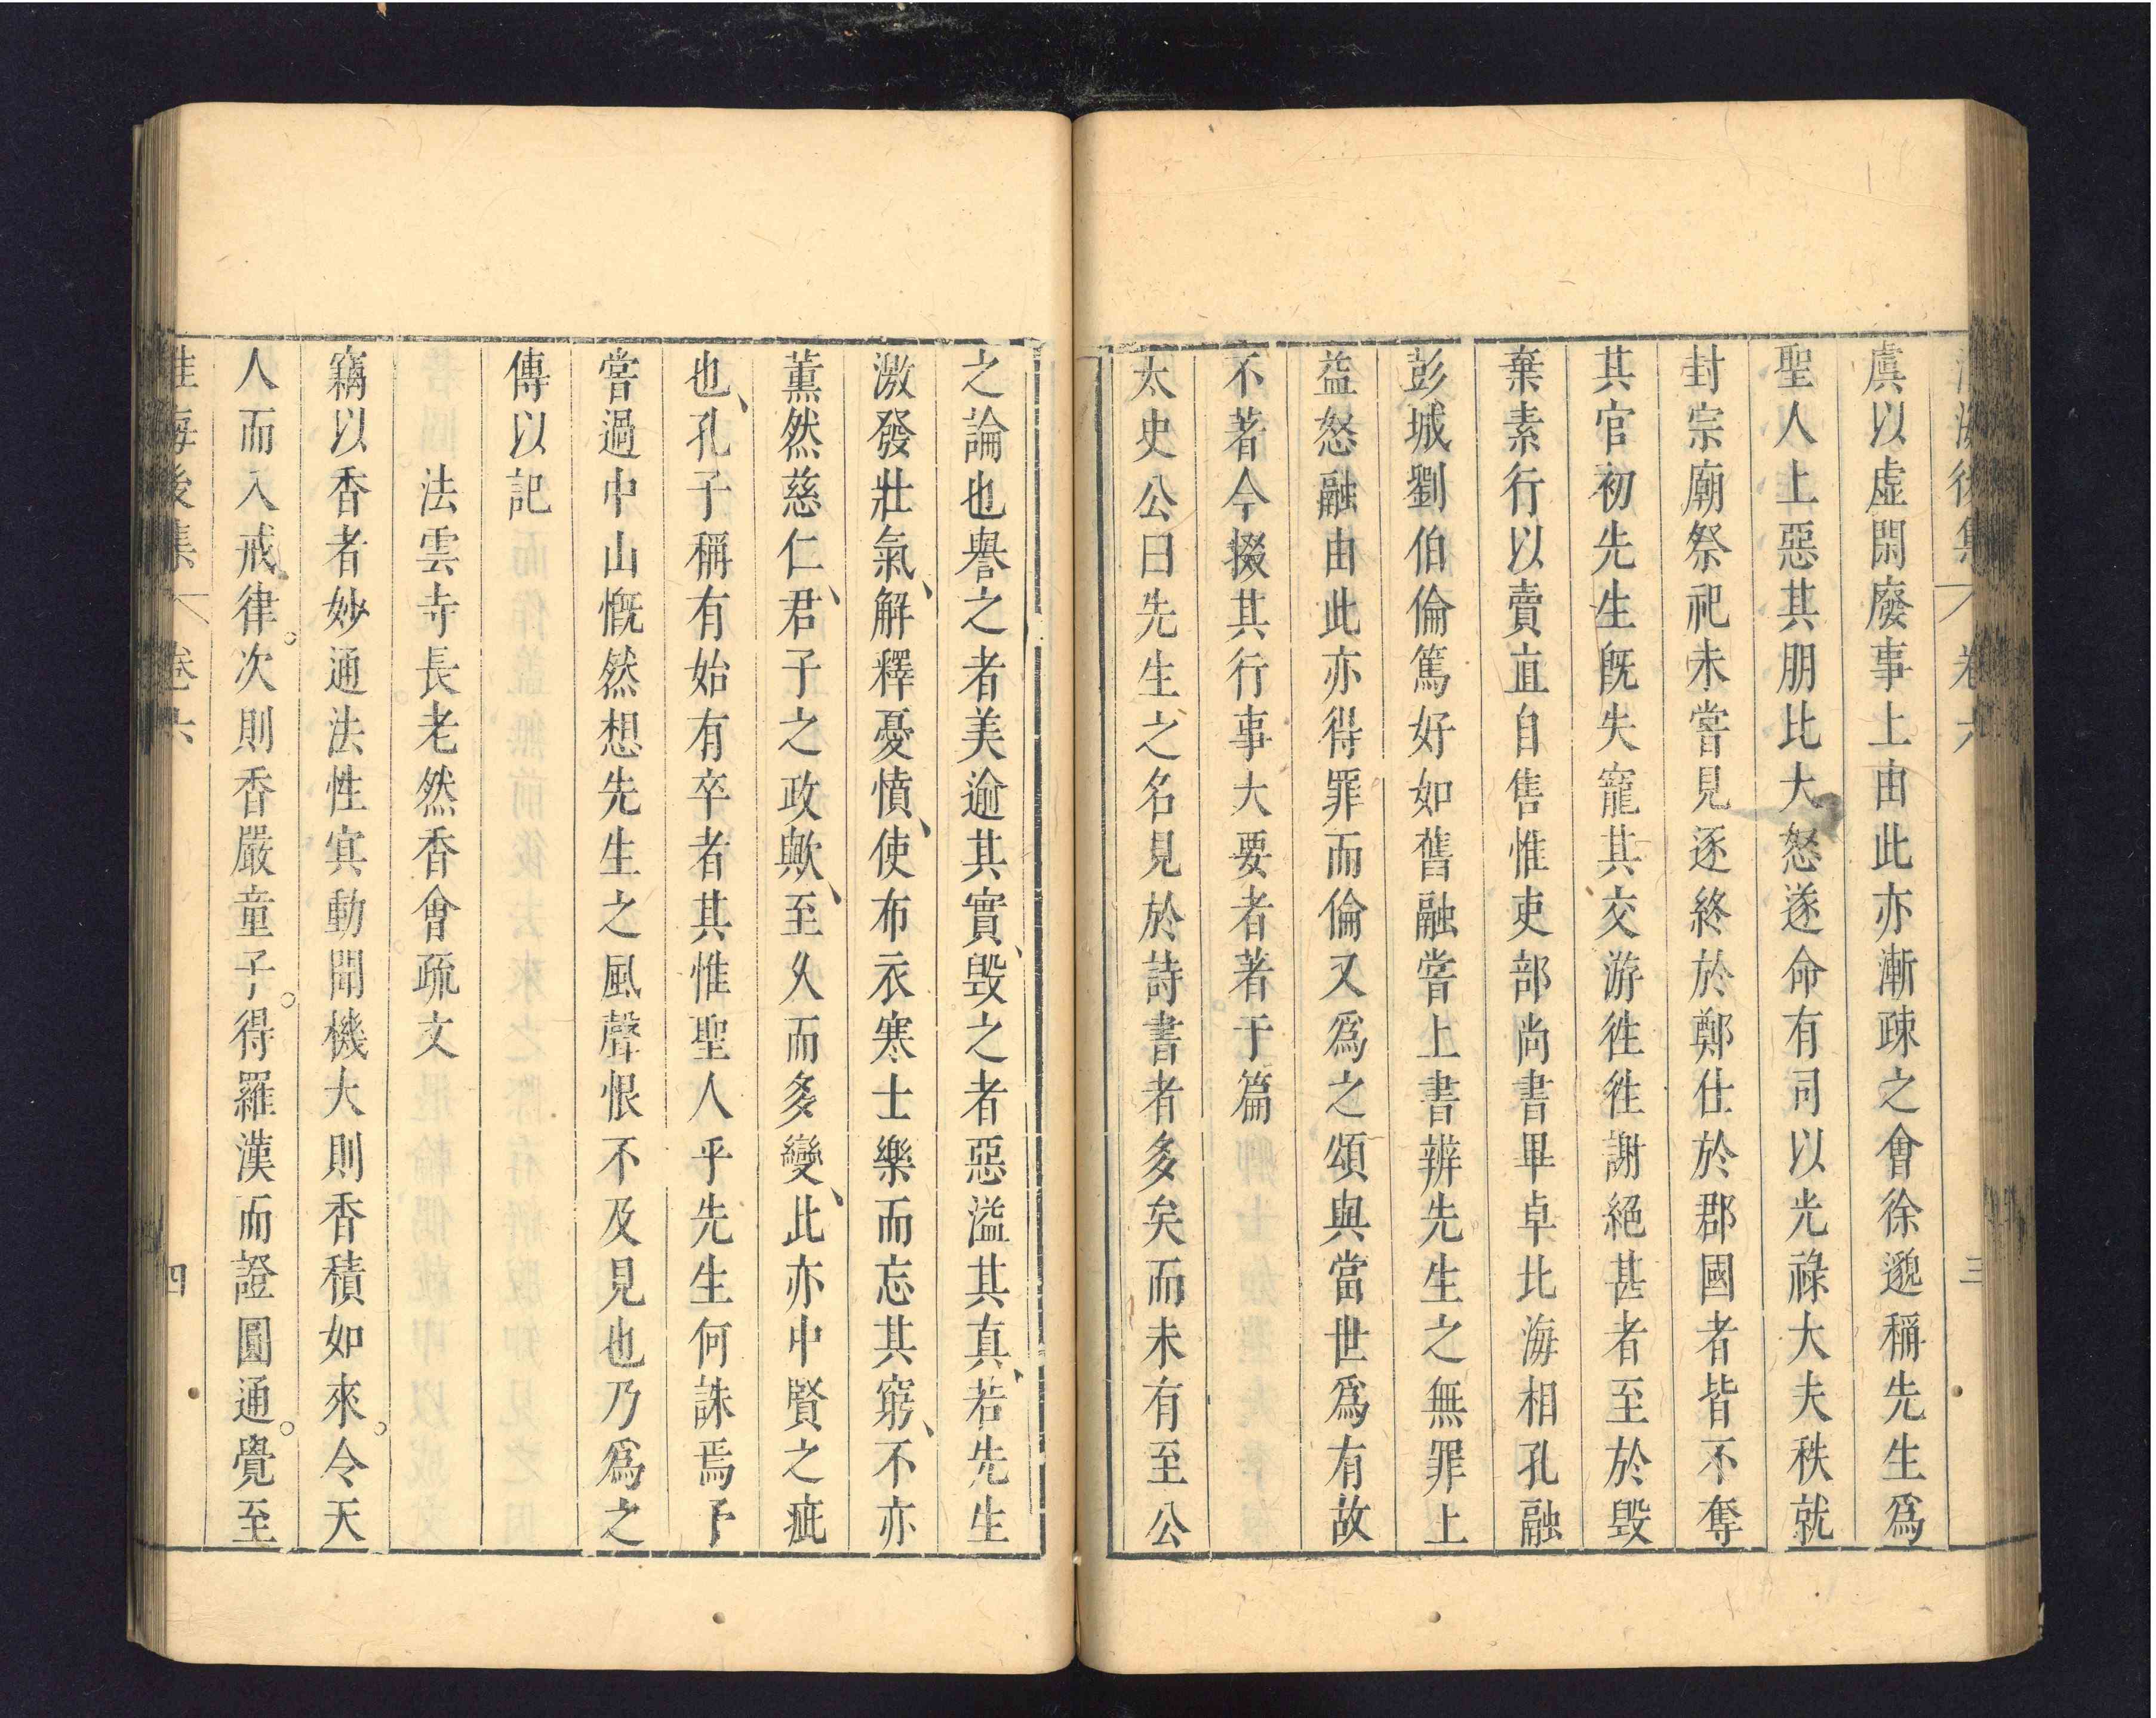 淮海後集 卷六 三
虞以虚閑廢事上由此亦漸疎之會徐邈稱先生爲
聖人上惡其朋比大怒遂命有司以光祿大夫秩就
封宗廟祭祀未嘗見逐終於鄭仕於郡國者皆不奪
其官初先生旣失寵其交游徃徃謝絕甚者至於毀
棄素行以賣直自售惟吏部尚書畢卓北海相孔融
彭城劉伯倫篤好如舊融嘗上書辨先生之無罪上
益怒融由此亦得罪而倫又爲之頌與當世爲有故
不著今掇其行事大要者著于篇
太史公曰先生之名見於詩書者多矣而未有至公
之論也譽之者美逾其實、毀之者惡溢其真、若先生
激發壯氣、解釋憂憤、使布衣寒士樂而忘其窮、不亦
薰然慈仁、君子之政歟、至久而多變、此亦中賢之疵
也、孔子稱有始有卒者其惟聖人乎先生何誅焉予
嘗過中山慨然想先生之風聲恨不及見也乃爲之
傳以記
法雲寺長老然香會疏文
竊以香者妙通法性寘動聞機大則香積如來。令天
人而入戒律。次則香嚴童子。得羅漢而證圓通。覺至
淮海後集 卷六 四